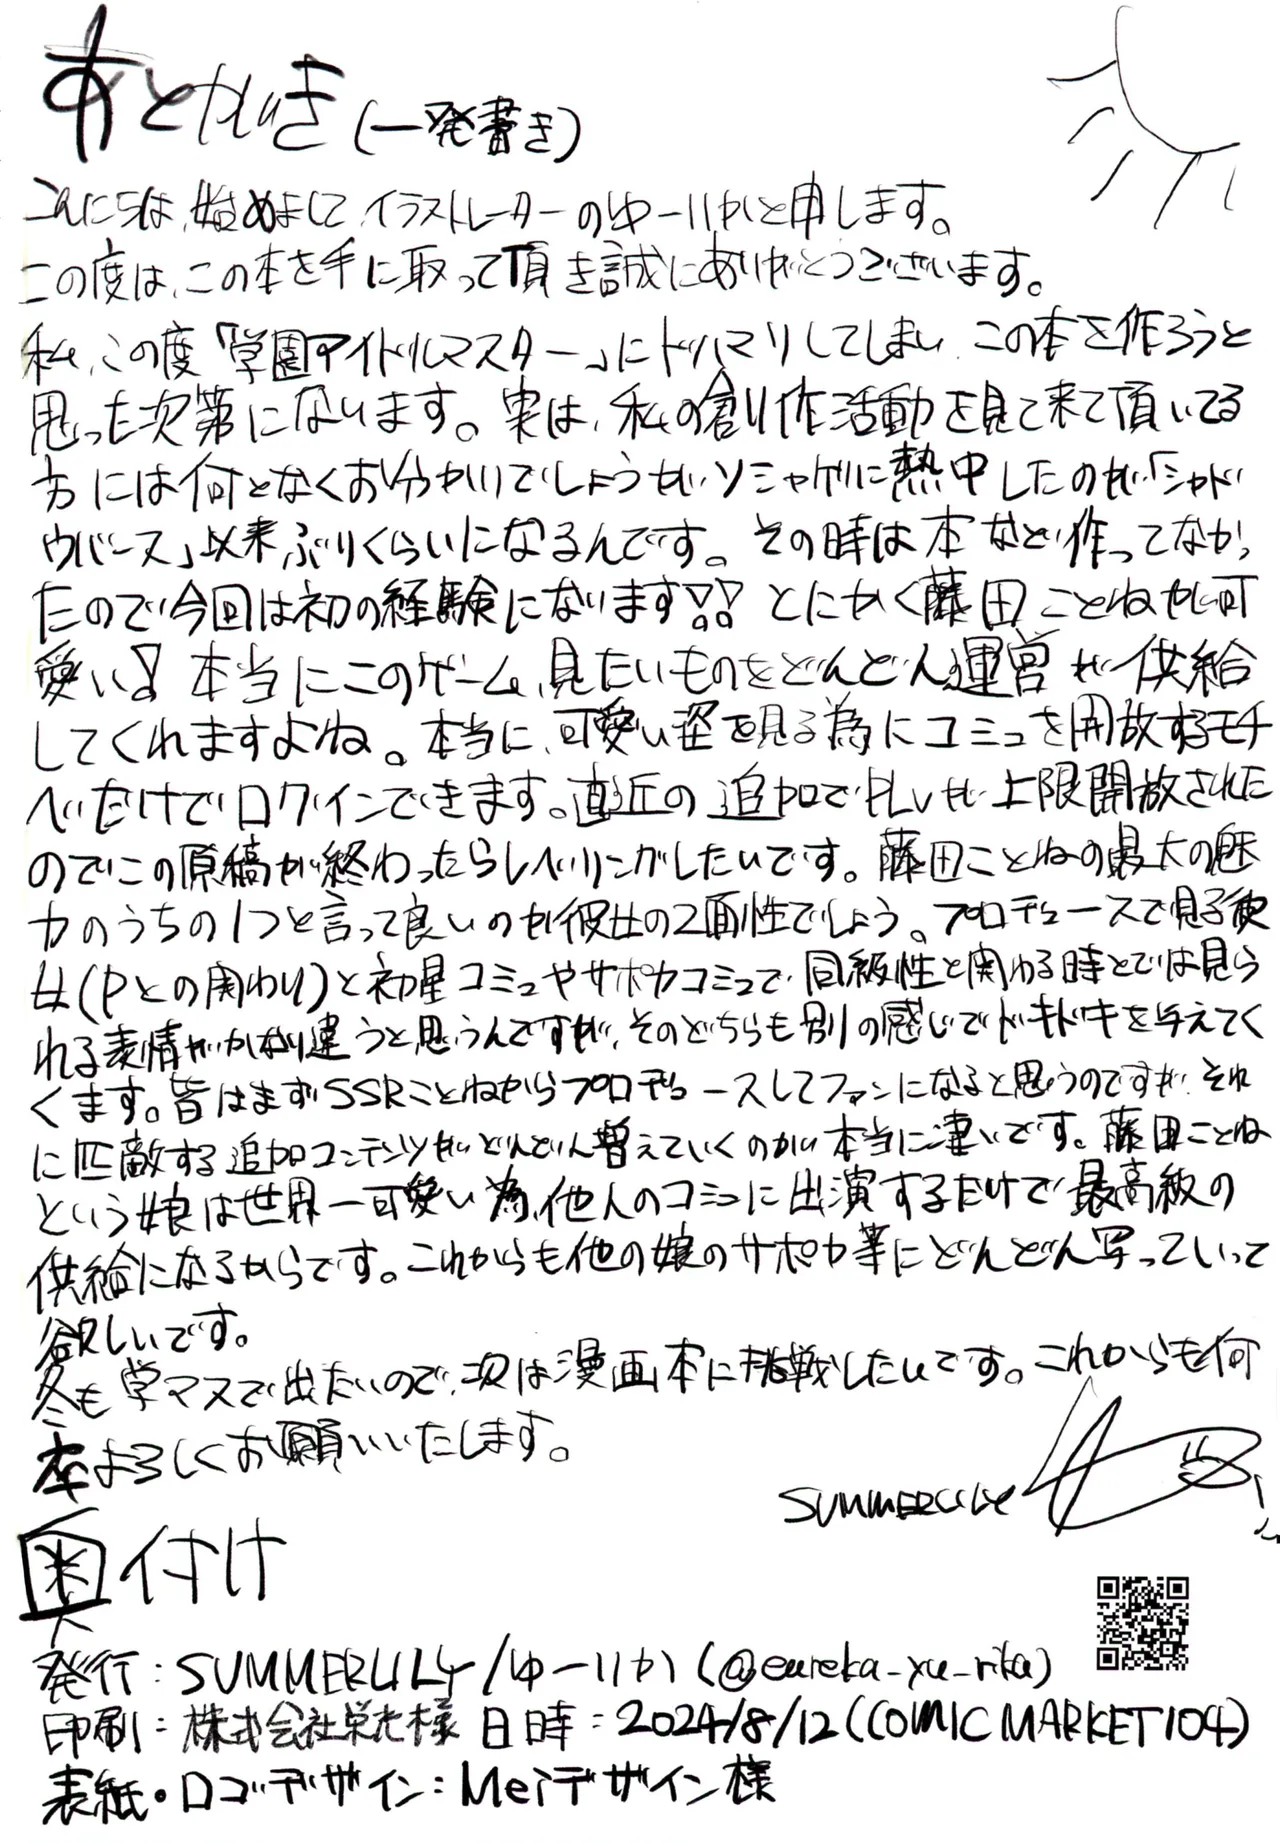 あとがき(一発書き)
こんにちは、始めまして イラストレーターのゆーりかと申します。
この度は、この本を手に取って頂き誠にありがとうございます。
私、この度「学園アイドルマスター」にドハマりしてしまい、この本を作ろうと
思った次第になります。実は、私の創作活動を見て来て頂いてる
方には何となくお分かりでしょうが、ソシャゲに熱中したのが「シャド
ウバース」以来ぶりくらいになるんです。その時は本など作ってなかっ
たので今回は初の経験になります!! とにかく藤田ことねが可
愛い! 本当にこのゲーム、見たいものをどんどん運営が供給
してくれますよね。本当に、可愛い姿を見る為にコミュを開放するモチ
べだけでログインできます。直近の追加でPLvが上限開放された
のでこの原稿が終わったらレベリングがしたいです。藤田ことねの最大の魅
力のうちの1つと言って良いのが彼女の2面性でしょう。プロデュースで見る彼
女(Pとの関わり)と初星コミュやサポカコミュで、同級性と関わる時とでは見ら
れる表情がかなり違うと思うんですが、そのどちらも別の感じでドキドキを与えてく
くます。皆はまずSSRことねからプロデュースしてファンになると思うのですが、それ
に匹敵する追加コンテンツがどんどん増えていくのが本当に凄いです。藤田ことね
という娘は世界一可愛い為、他人のコミュに出演するだけで最高級の
供給になるからです。これからも他の娘のサポカ等にどんどん写っていって
欲しいです。
冬も学マスで出たいので、次は漫画本に挑戦したいです。これからも何
卒よろしくお願いいたします。
SUMMERLILY
奥付け
発行:SUMMERLILY/ゆーりか(@eureka_yu_rika)
印刷:株式会社栄光様 日時:2024/8/12(COMIC MARKET104)
表紙・ロゴデザイン:Meiデザイン様